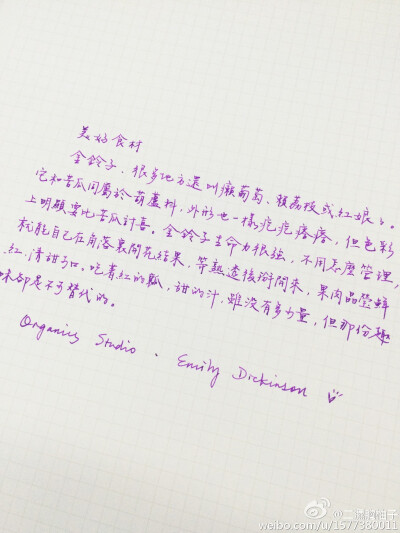 美好食材
金鈴子，很多地方還叫癩葡萄、癩荔枝或紅娘子。
它和苦瓜同屬於葫蘆科，外形也一樣疙疙瘩瘩，但色彩
上明顯要比苦瓜討喜。金鈴子生命力很強，不用怎麼管理，
就能自己在角落裏開花結果，等熟透後掰開來，果肉晶瑩鮮
紅，清甜可口。吃着紅的瓤，甜的汁，雖沒有多少量，但那份趣
味都是不可替代的。
Organics Studio · Emily Dickinson
weibo.com/u/1577380011